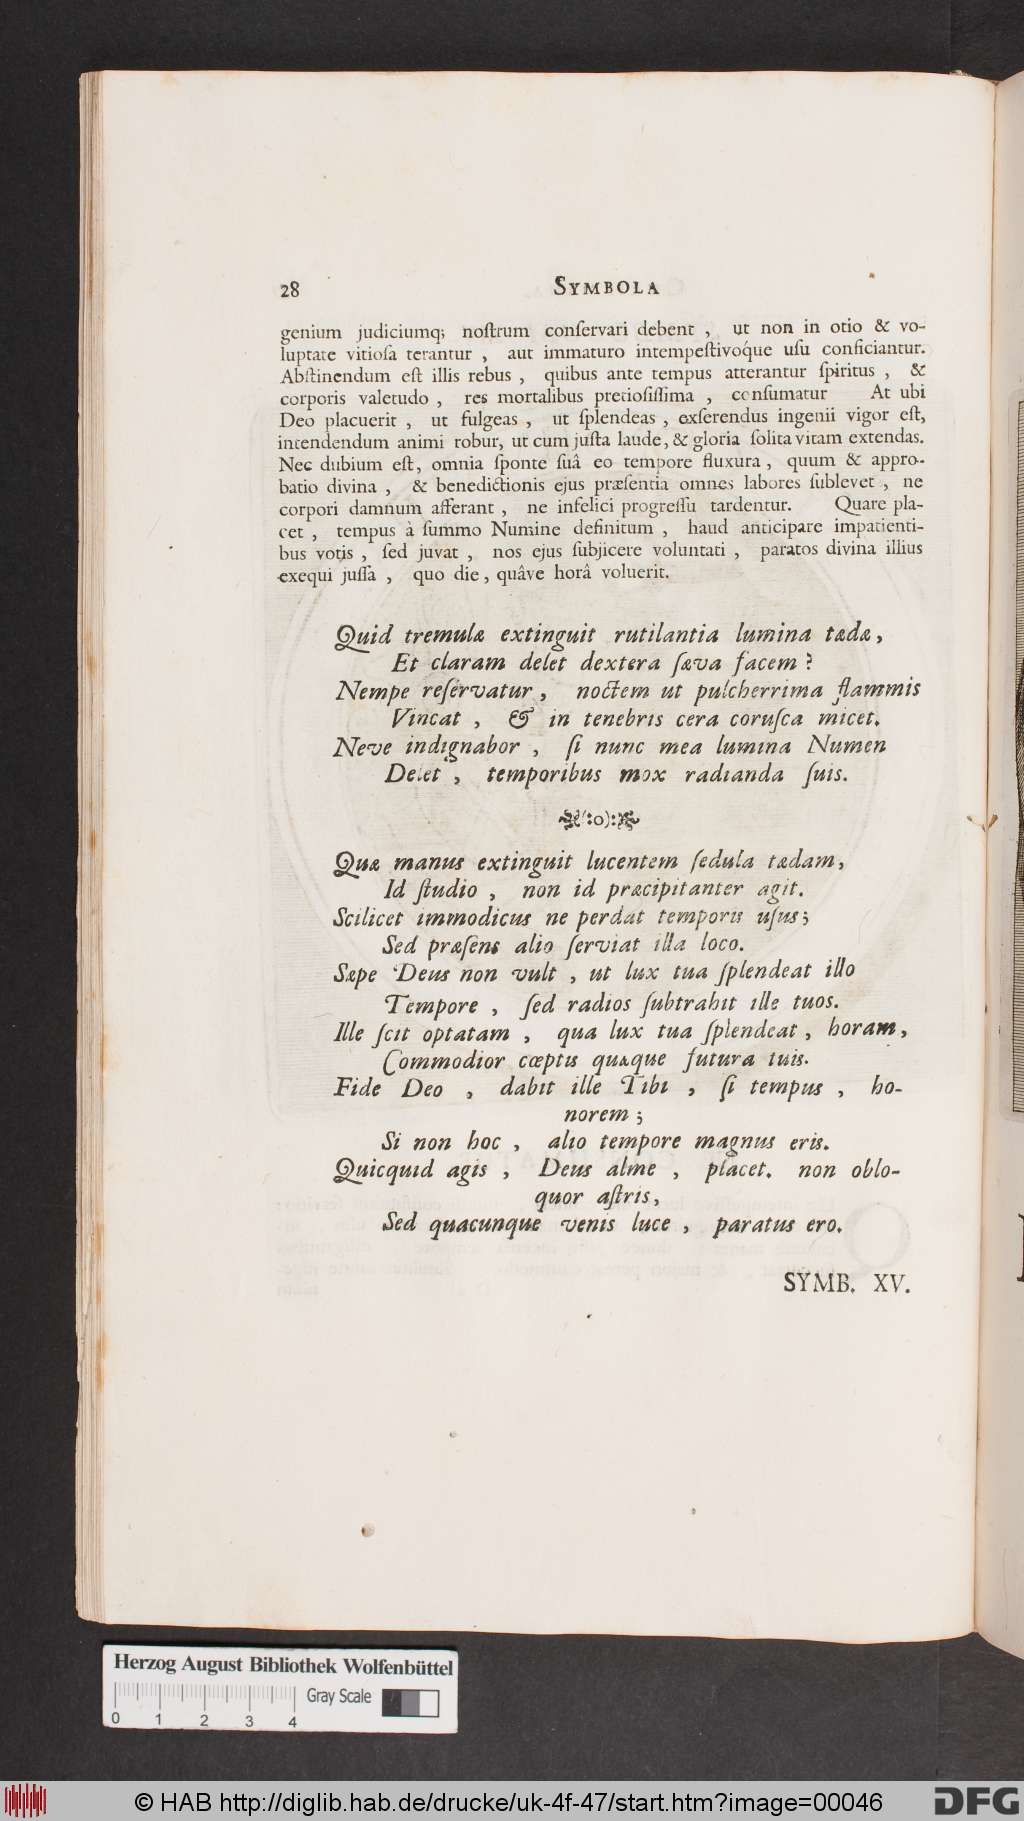 28 SYMBOLA
genium judiciumq; noſtrum conſervari debent , ut non in otio & vo-
luptate vitioſa terantur , aut immaturo intempeſtivoq́ue uſu conficiantur.
Abſtinendum eſt illis rebus , quibus ante tempus atterantur ſpiritus , &
corporis valetudo , res mortalibus pretioſiſſima , conſumatur At ubi
Deo placuerit , ut fulgeas , ut ſplendeas , exſerendus ingenii vigor eſt,
intendendum animi robur, ut cum juſta laude, & gloria ſolita vitam extendas.
Nec dubium eſt, omnia ſponte ſuâ eo tempore fluxura , quum & appro-
batio divina , & benedictionis ejus præſentia omnes labores ſublevet , ne
corpori damnum afferant , ne infelici progreſſu tardentur. Quare pla-
cet , tempus à ſummo Numine definitum , haud anticipare impatienti-
bus votis , ſed juvat , nos ejus ſubjicere voluntati , paratos divina illius
exequi juſſa , quo die , quâve horâ voluerit.
Quid tremulæ extinguit rutilantia lumina tædæ,
Et claram delet dextera ſæva facem ?
Nempe reſervatur , noctem ut pulcherrima flammis
Vincat , & in tenebris cera coruſca micet.
Neve indignabor , ſi nunc mea lumina Numen
Delet , temporibus mox radianda ſuis.
(:o):
Quæ manus extinguit lucentem ſedula tædam,
Id ſtudio , non id præcipitanter agit.
Scilicet immodicus ne perdat temporis uſus;
Sed præſens alio ſerviat illa loco.
Sæpe Deus non vult , ut lux tua ſplendeat illo
Tempore , ſed radios ſubtrahit ille tuos.
Ille ſcit optatam , qua lux tua ſplendeat , horam,
Commodior cœptis quæque futura tuis.
Fide Deo , dabit ille Tibi , ſi tempus , ho-
norem ;
Si non hoc , alio tempore magnus eris.
Quicquid agis , Deus alme , placet. non oblo-
quor aſtris,
Sed quacunque venis luce , paratus ero.
SYMB. XV.
Herzog August Bibliothek Wolfenbüttel
Gray Scale
0 1 2 3 4
© HAB http://diglib.hab.de/drucke/uk-4f-47/start.htm?image=00046
DFG